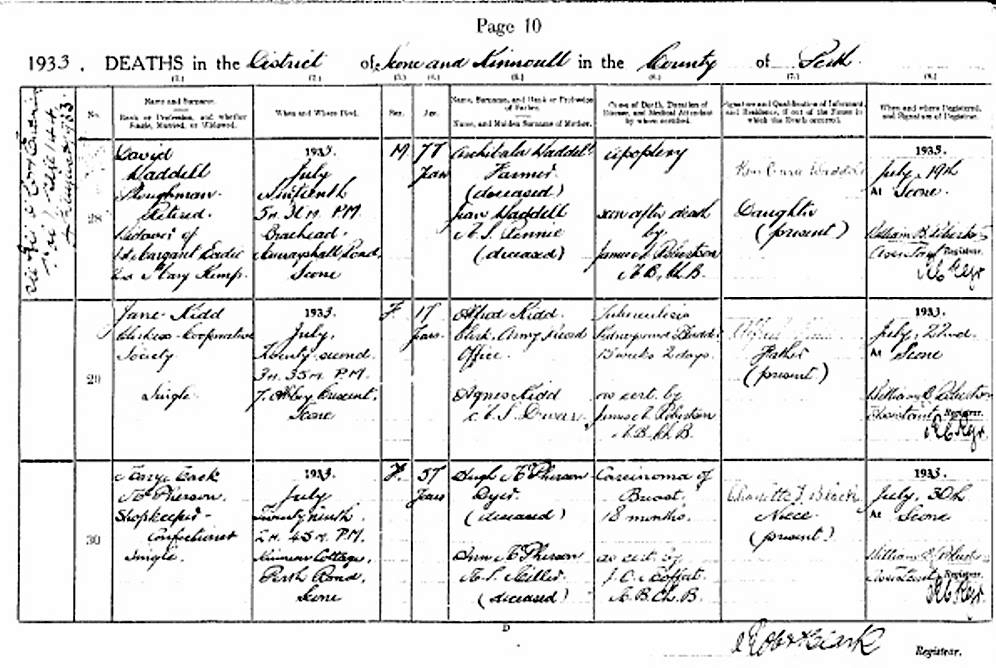 Page 10
1933. DEATHS in the District of Scone and Kinnoull in the County of Perth
(1.) (2.) (3.) (4.) (5.) (6.) (7.) (8.)
No.
Name and Surname.
Rank or Profession, and whether Single, Married, or Widowed.
When and Where Died.
Sex.
Age.
Name, Surname, and Rank or Profession of Father.
Name, and Maiden Surname of Mother.
Cause of Death, Duration of Disease, and Medical Attendant by whom certified.
Signature and Qualification of Informant, and Residence, if out of the House in which the Death occurred.
When and where Registered, and Signature of Registrar.
28
David
Waddell
Ploughman
Retired.
Widower of
1st Margaret
2nd Mary Kemp.
1933.
July
Nineteenth
5H. 30M. P.M.
Braehead.
Murrayshall Road,
Scone
M
77
Years
Archibald Waddell
Farmer
(deceased)
Jean Waddell
M.S. Rennie
(deceased)
Apoplexy
seen after death
by
James Robertson
M.B., Ch.B.
Waddell
Daughter
(present)
1933.
July, 19th
At Scone.
William
Assistant Registrar.
29
Jane Kidd
Clerkess - Cooperative
Society
Single
1933.
July,
Twenty second.
3H. 35M. P.M.
7, Abbey Crescent,
Scone
F.
17
Years.
Alfred Kidd.
Clerk, Army Record
Office.
Agnes Kidd
M.S. Dewar
Tuberculosis
Kidney and Bladder
15 weeks 2 days.
as cert. by
James Robertson
M.B., Ch.B.
Alfred Kidd
Father
(present)
1933.
July, 22nd.
At Scone
William
Assistant Registrar.
30
Mary
McPherson.
Shopkeeper -
Confectioner
Single.
1933.
July
Twenty ninth.
2H. 45M. P.M.
Cottage,
Perth Road,
Scone
F.
57
Years
Hugh McPherson
Dyer
(deceased)
Ann McPherson
M.S. Miller.
(deceased)
Carcinoma of
Breast.
18 months.
as cert. by
J. C. Moffat.
M.B. Ch.B.
Black
Niece
(present)
1933.
July, 30th
At Scone
William
Assistant Registrar.
D
Clark Registrar.